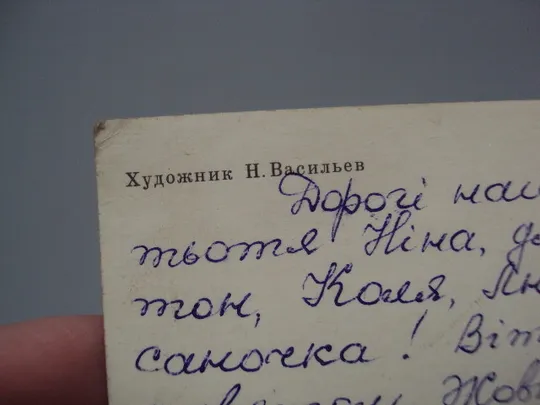 Художник Н. Васильев
Дорогі наш
тьотя Ніна, дя
тон, Коля, Лю
саночка! Віт
Жов